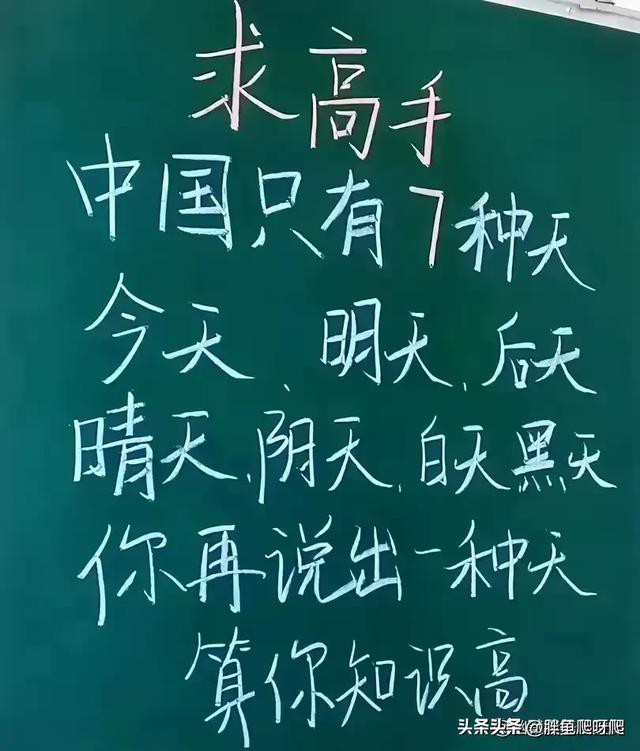 求高手
中国只有7种天
今天、明天、后天
晴天、阴天、白天黑天
你再说出一种天
算你知识高
头条头条@胖鱼爬呀爬